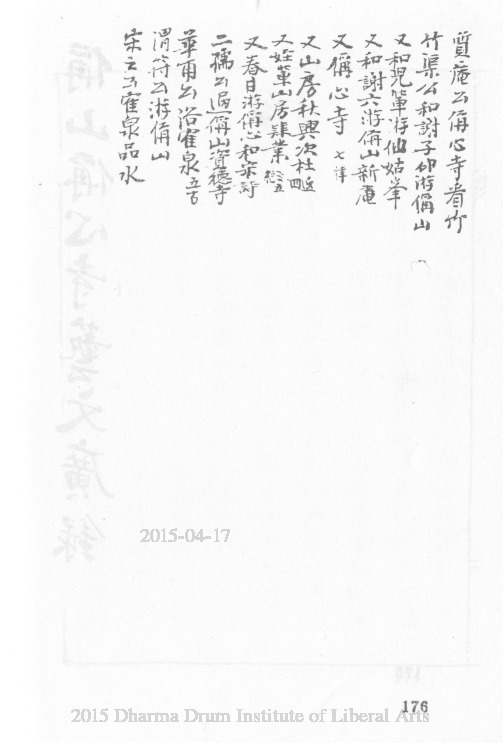 質庵公偁心寺看竹
竹渠公和謝子卬游偁山
又和兒輩游仙姑峯
又和謝六游偁山新庵
又稱心寺 七律
又山房秋興次杜
又姪輩山房肄業
又春日游偁心和宋詩
二孺公過偁山資德寺
華甫公浴窪泉 五古
渭符公游偁山
宋玉窪泉品水
2015-04-17
176
2015 Dharma Drum Institute of Liberal Arts